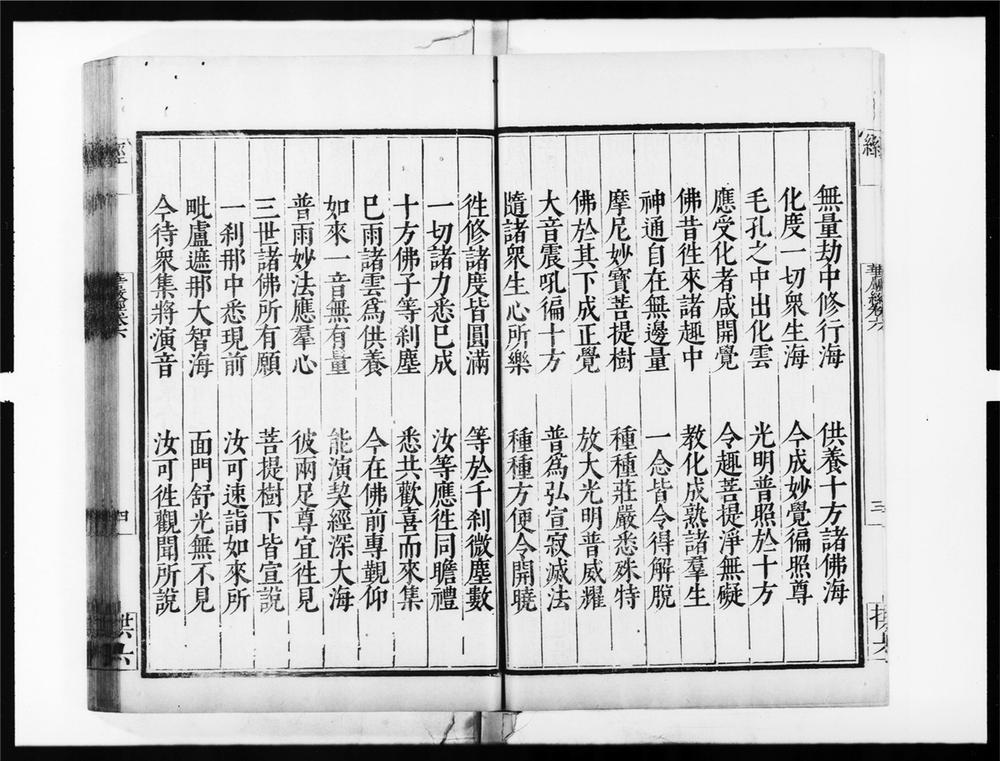 無量劫中修行海 供養十方諸佛海
化度一切衆生海 今成妙覺徧照尊
毛孔之中出化雲 光明普照於十方
應受化者咸開覺 令趣菩提淨無礙
佛昔徃來諸趣中 教化成熟諸羣生
神通自在無邊量 一念皆令得解脫
摩尼妙寶菩提樹 種種莊嚴悉殊特
佛於其下成正覺 放大光明普威耀
大音震吼徧十方 普爲弘宣寂滅法
隨諸衆生心所樂 種種方便令開曉
徃修諸度皆圓滿 等於千剎微塵數
一切諸力悉已成 汝等應徃同瞻禮
十方佛子等剎塵 悉共歡喜而來集
已雨諸雲爲供養 今在佛前專覲仰
如來一音無有量 能演契經深大海
普雨妙法應羣心 彼兩足尊宜徃見
三世諸佛所有願 菩提樹下皆宣說
一剎那中悉現前 汝可速詣如來所
毗盧遮那大智海 面門舒光無不見
今待衆集將演音 汝可徃觀聞所說
三
經
四
拱六